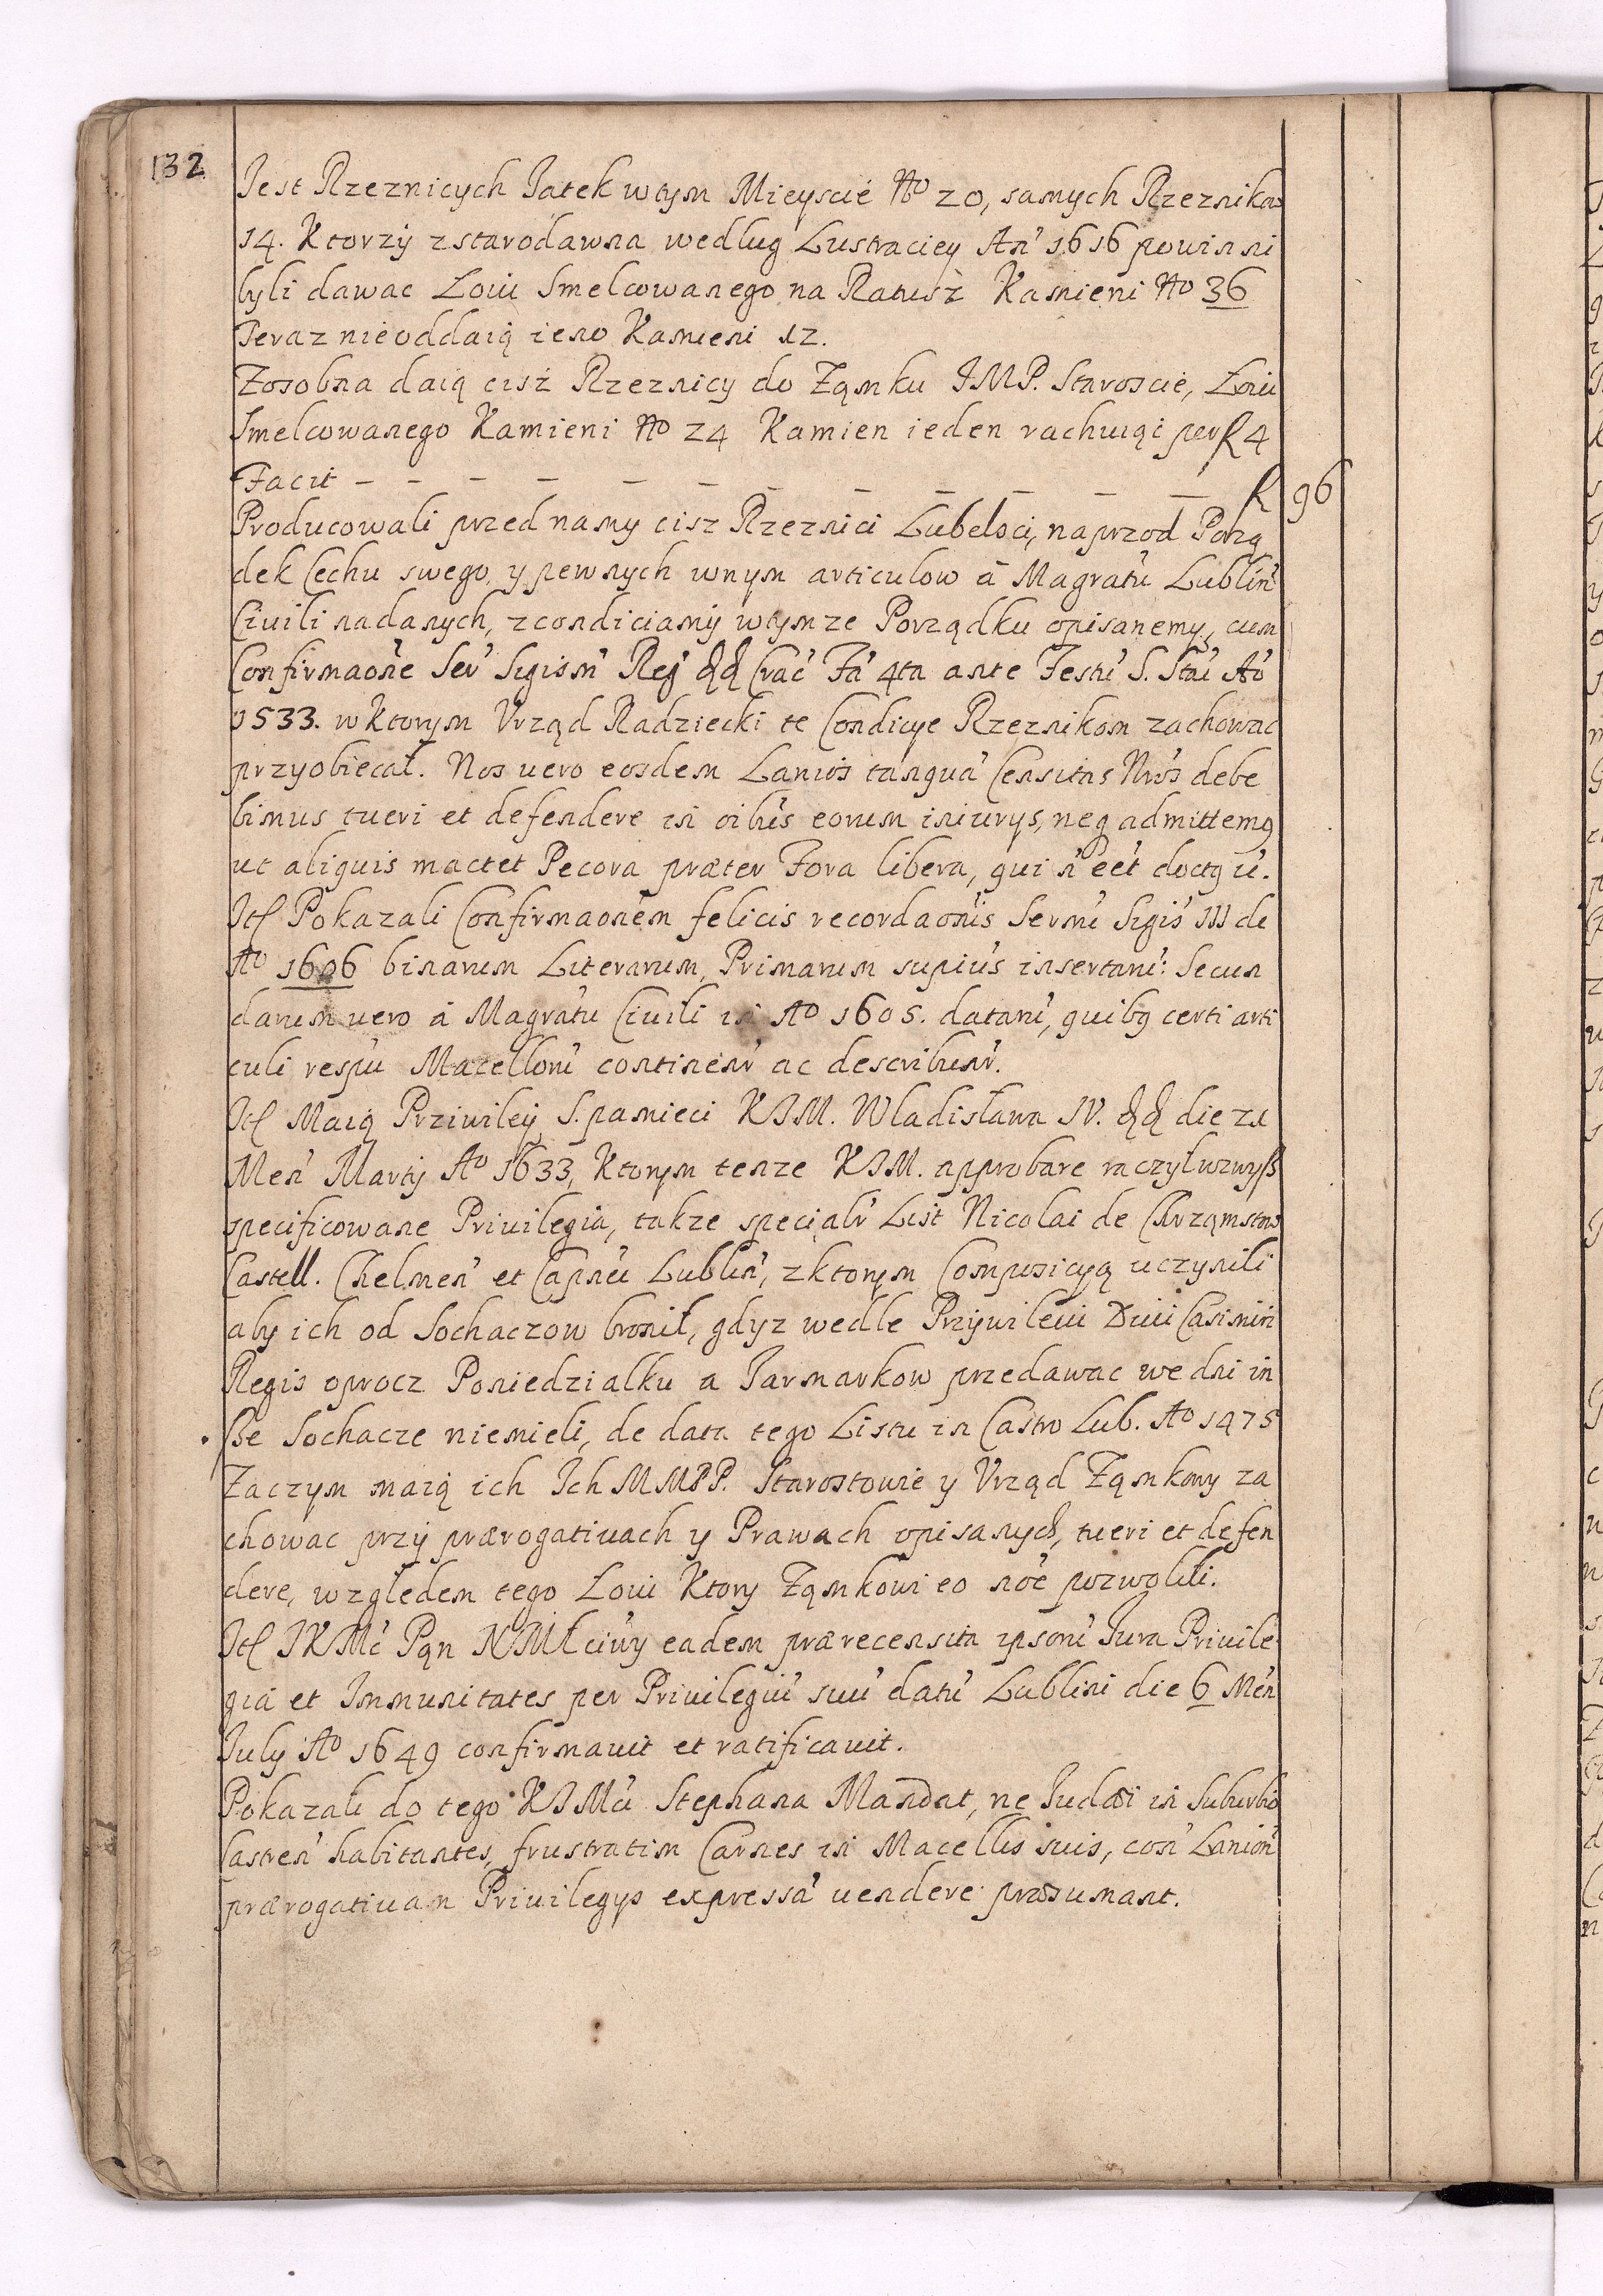 132
Jest Rzeznicych Jatek wtym Mieyscie No 20, samych Rzeznikow
14. Ktorzy zstarodawna wedlug Lustraciey An' 1616 powinni
byli dawac Loiu Smelcowanego na Ratusz Kamieni No 36
Teraz nieoddaią ieno Kamieni 12.
Zosobna daią cisz Rzeznicy do Ząmku JMP. Staroscie, Loiu
Smelcowanego Kamieni No 24 Kamien ieden rachuiąc per f 4
Facit — — — — — — — — — — — f 96
Producowali przed namy cisz Rzeznici Lubelsci, naprzod Porzą
dek Cechu swego, y pewnych wnym articulow à Magratu Lublin'
Civili nadanych, zcondiciamy wtymze Porządku opisanemy, cum
Confirmaone Ser' Sigism' Reg' dd Crac' Fa' 4ta ante Festu' S. Stai' Ao
1533. wKtorym Vrząd Radziecki te Condicye Rzeznikom zachowac
przyobiecał. Nos vero eosdem Lanios tanqua' Censitas Nros debe
bimus tueri et defendere in oibus eorum iniurys, neq admittemq
ut aliquis mactet Pecora præter Fora libera, qui n' eet doctq
Itl Pokazali Confirmaonem felicis recordaonis Sermi Sigis' III de
Ao 1606 binarum Literarum, Primarum supius insertaru': Secun
darum vero à Magratu Civili in Ao 1605. dataru', quibq certi arti
culi respu Macelloru' continenr' ac describunr'.
Itl Maią Prziviley S. pamieci KJM. Wladisława IV. dd die 21
Men' Marty Ao 1633, Ktorym tenze KJM. approbare raczyl wzwyß
specificowane Privilegia, takze specialr' List Nicolai de Chrząmstow
Castell. Chelmen' et Capnei Lublin', zktorym Compozicyą uczynili
aby ich od Sochaczow bronił, gdyz wedle Przywileiu Diui Casimiri
Regis oprocz Poniedzialku a Jarmarkow przedawac we dni in
ße Sochacze niemieli, de data tego Listu in Castro Lub. Ao 1475
Zaczym maią ich Ich MMPP. Starostowie y Vrząd Ząmkowy za
chowac przy prærogativach y Prawach opisanych, tueri et defen
dere, wzgledem tego Loiu Ktory Ząmkowi eo noe pozwolili.
Itl JKMc Pąn NMłciwy eadem prærecensita ipsoru' Iura Privile
gia et Immunitates per Privilegiu' suu' datu' Lublini die 6 Men'
July Ao 1649 confirmavit et ratificavit.
Pokazali do tego KJMci Stephana Mandat, ne Iudæi in Suburbio
Castren' habitantes, frustratim Carnes in Macellis suis, con' Lanion'
prærogativam Privilegys expressa' vendere præsumant.